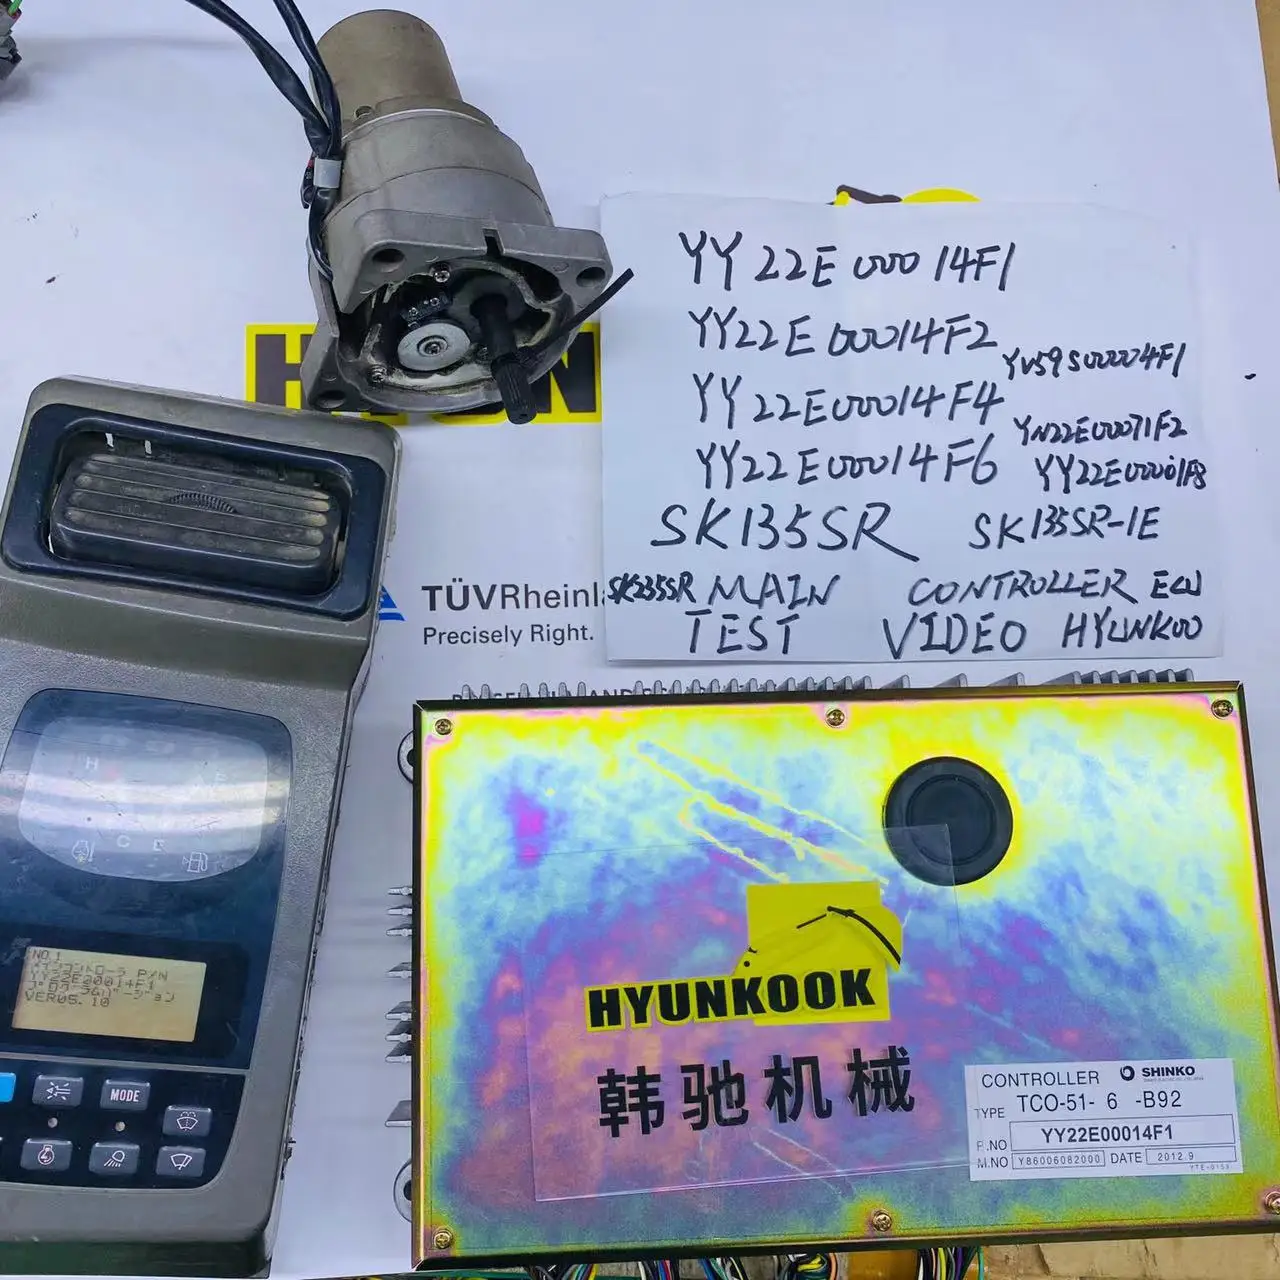 YY22E00014F1
YY22E00014F2
YV59S00004F1
YY22E00014F4
YN22E00071F2
YY22E00014F6
YY22E00001F8
SK135SR SK135SR-1E
SK235SR MAIN CONTROLLER ECU
TEST VIDEO HYUNKOO
TÜVRheinla
Precisely Right.
H
C E
NO.1
P/N
YY22E00014F1
VER05.10
MODE
HYUNKOOK
韩驰机械
CONTROLLER SHINKO
TYPE TCO-51- 6 -B92
P.NO YY22E00014F1
M.NO Y86006082000 DATE 2012.9
YTE-0153